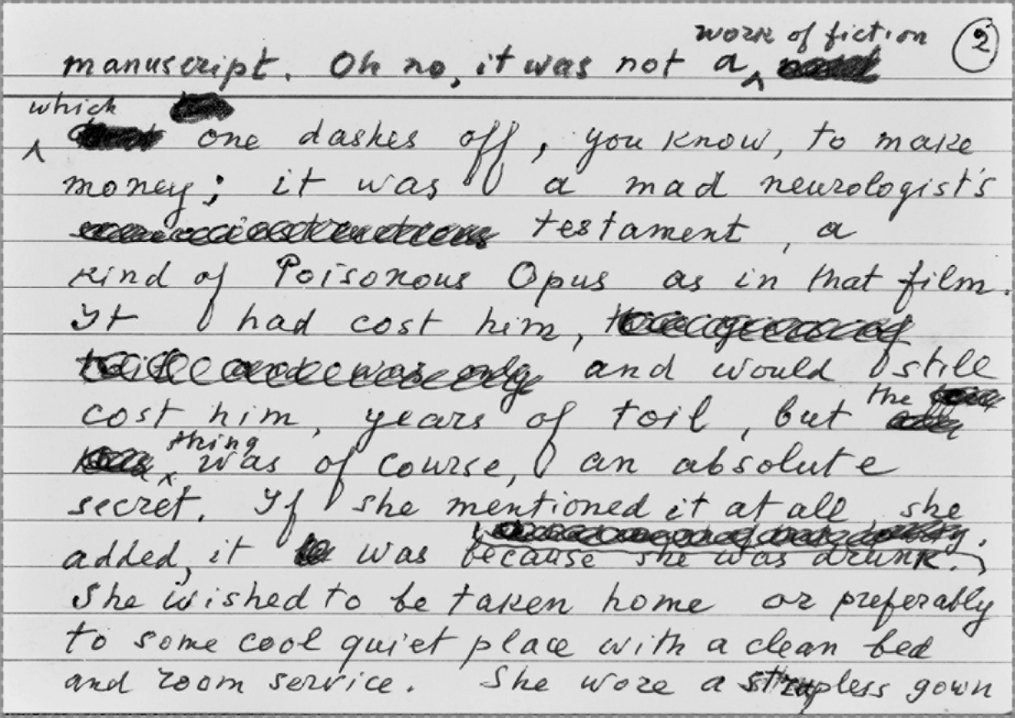 work of fiction 2
manuscript. Oh no, it was not a
which
one dashes off, you know, to make
money; it was a mad neurologist's
testament, a
kind of Poisonous Opus as in that film.
It had cost him,
and would still
cost him, years of toil, but the
thing was of course, an absolute
secret. If she mentioned it at all, she
added, it was because she was drunk.
She wished to be taken home or preferably
to some cool quiet place with a clean bed
and room service. She wore a strapless gown